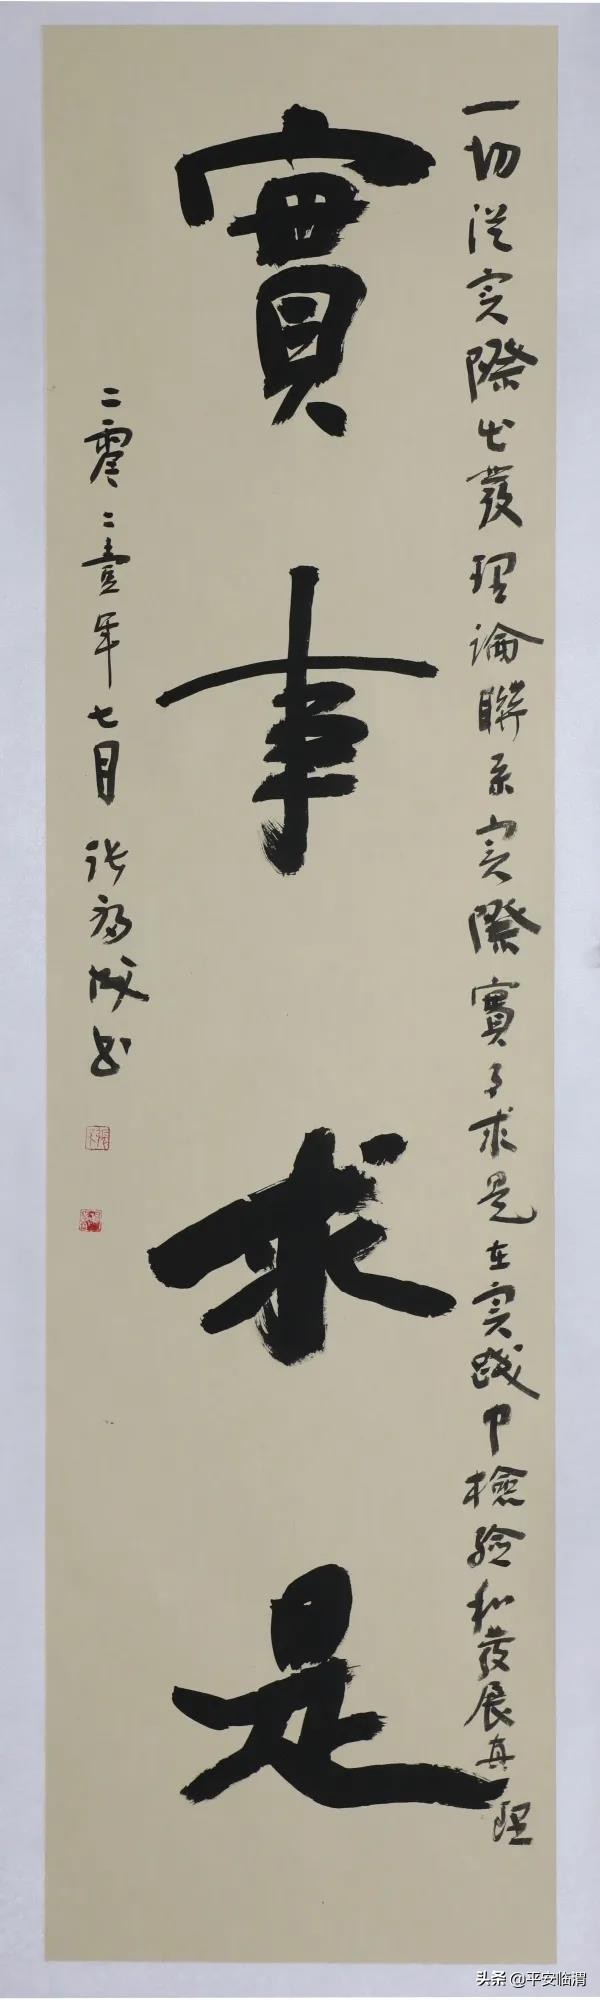 一切從实際出發理論聯系实際實事求是在实踐中檢驗和發展真理
實事求是
二零二壹年七月 张福成书
头条 @平安临渭